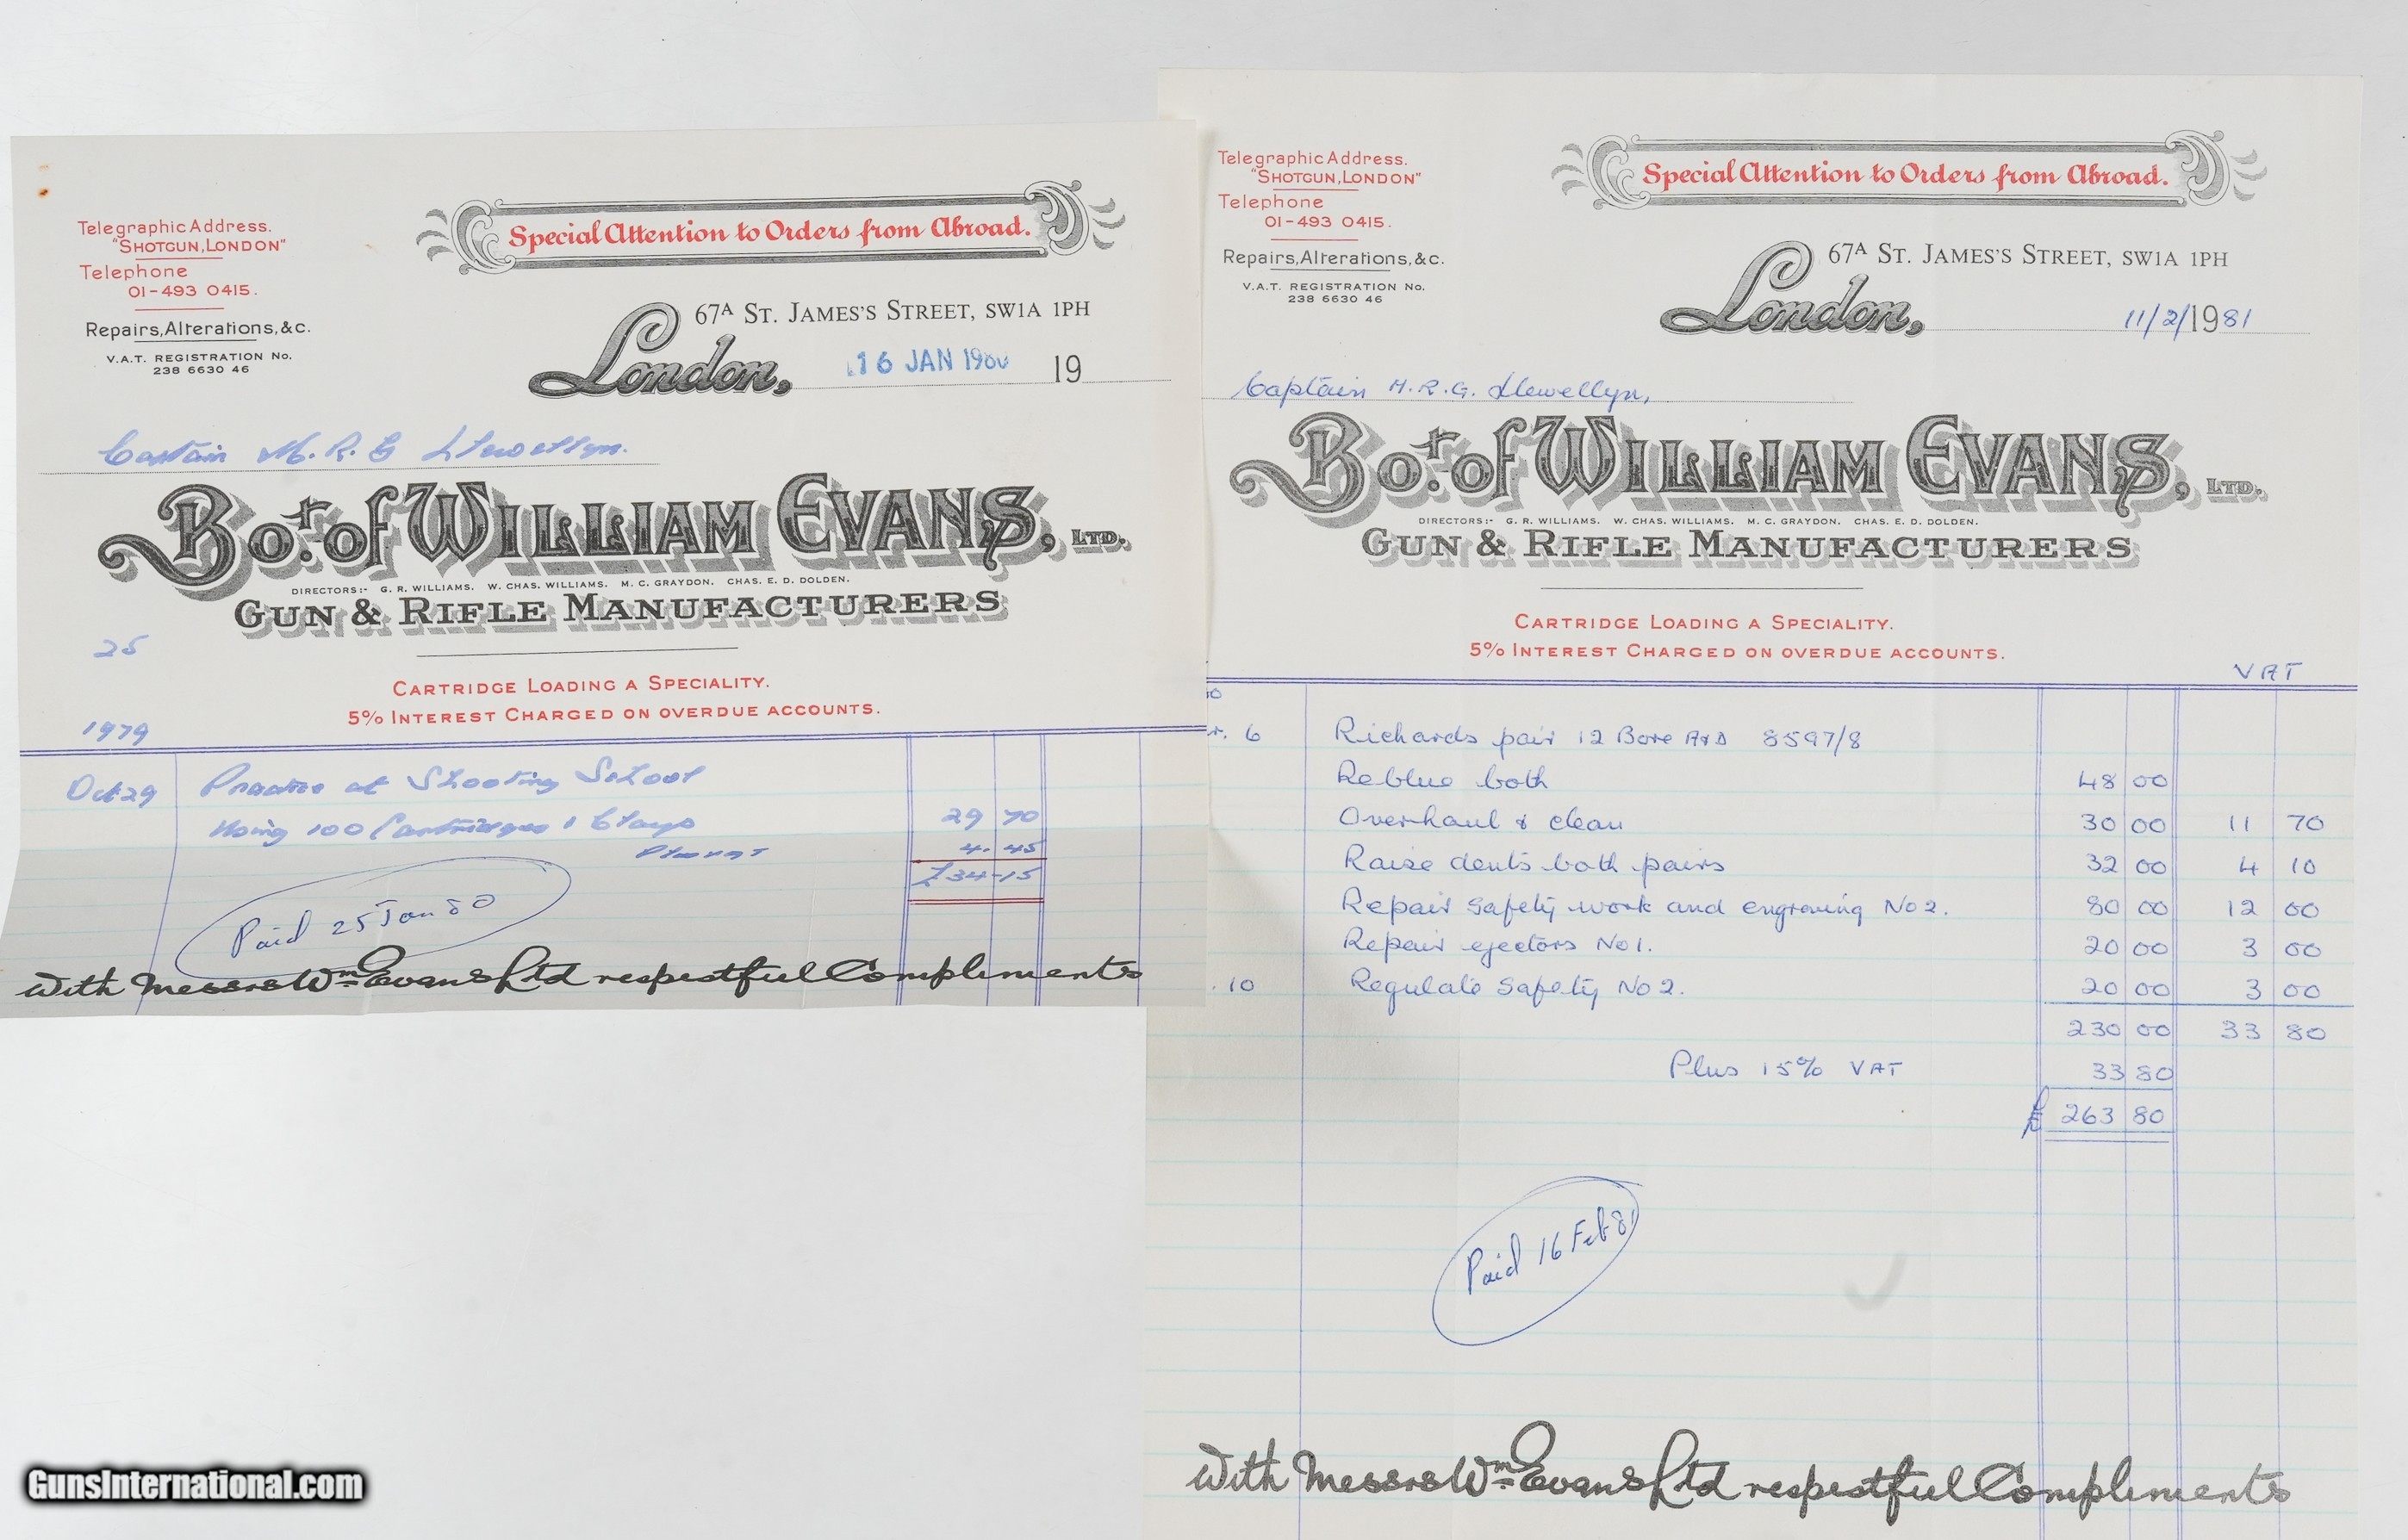 Telegraphic Address.
"SHOTGUN, LONDON"
Telephone
01-493 0415.
Repairs, Alterations, &c.
V.A.T. REGISTRATION No.
238 6630 46
Special Attention to Orders from Abroad.
67A ST. JAMES'S STREET, SW1A 1PH
London, 16 JAN 1980 19
Captain M. R. G Llewellyn.
Bot. of WILLIAM EVANS, LTD.
DIRECTORS:- G. R. WILLIAMS. W. CHAS. WILLIAMS. M. C. GRAYDON. CHAS. E. D. DOLDEN.
GUN & RIFLE MANUFACTURERS
25
CARTRIDGE LOADING A SPECIALITY.
5% INTEREST CHARGED ON OVERDUE ACCOUNTS.
1979
Oct 29 Practice at Shooting School
Using 100 Cartridges & Clays 29 70
Plus VAT 4. 45
£34-15
Paid 25 Jan 80
With Messrs Wm Evans Ltd respectful Compliments
Telegraphic Address.
"SHOTGUN, LONDON"
Telephone
01-493 0415.
Repairs, Alterations, &c.
V.A.T. REGISTRATION No.
238 6630 46
Special Attention to Orders from Abroad.
67A ST. JAMES'S STREET, SW1A 1PH
London, 11/2/1981
Captain M. R. G. Llewellyn,
Bot. of WILLIAM EVANS, LTD.
DIRECTORS:- G. R. WILLIAMS. W. CHAS. WILLIAMS. M. C. GRAYDON. CHAS. E. D. DOLDEN.
GUN & RIFLE MANUFACTURERS
CARTRIDGE LOADING A SPECIALITY.
5% INTEREST CHARGED ON OVERDUE ACCOUNTS.
VAT
6 Richards pair 12 Bore 8597/8
Reblue both 48 00
Overhaul & clean 30 00 11 70
Raise dents both pairs 32 00 4 10
Repair safety work and engraving No 2. 80 00 12 00
Repair ejectors No 1. 20 00 3 00
10 Regulate Safety No 2. 20 00 3 00
230 00 33 80
Plus 15% VAT 33 80
£ 263 80
Paid 16 Feb 81
With Messrs Wm Evans Ltd respectful Compliments
GunsInternational.com